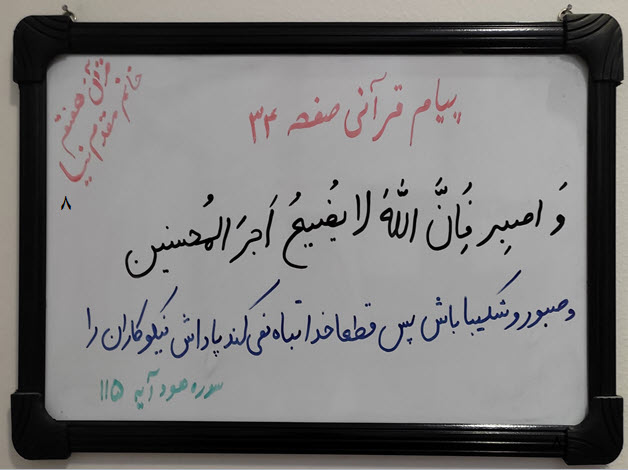 قرآن هفتم
خانم مقدم نیا
۸
پیام قرآنی صفحه ۳۴
وَ اصبِر فَاِنَّ اللّهَ لا یُضیعُ اَجرَ المُحسنین
و صبور و شکیبا باش پس قطعا خدا تباه نمی کند پاداش نیکوکاران را
سوره هود آیه ۱۱۵